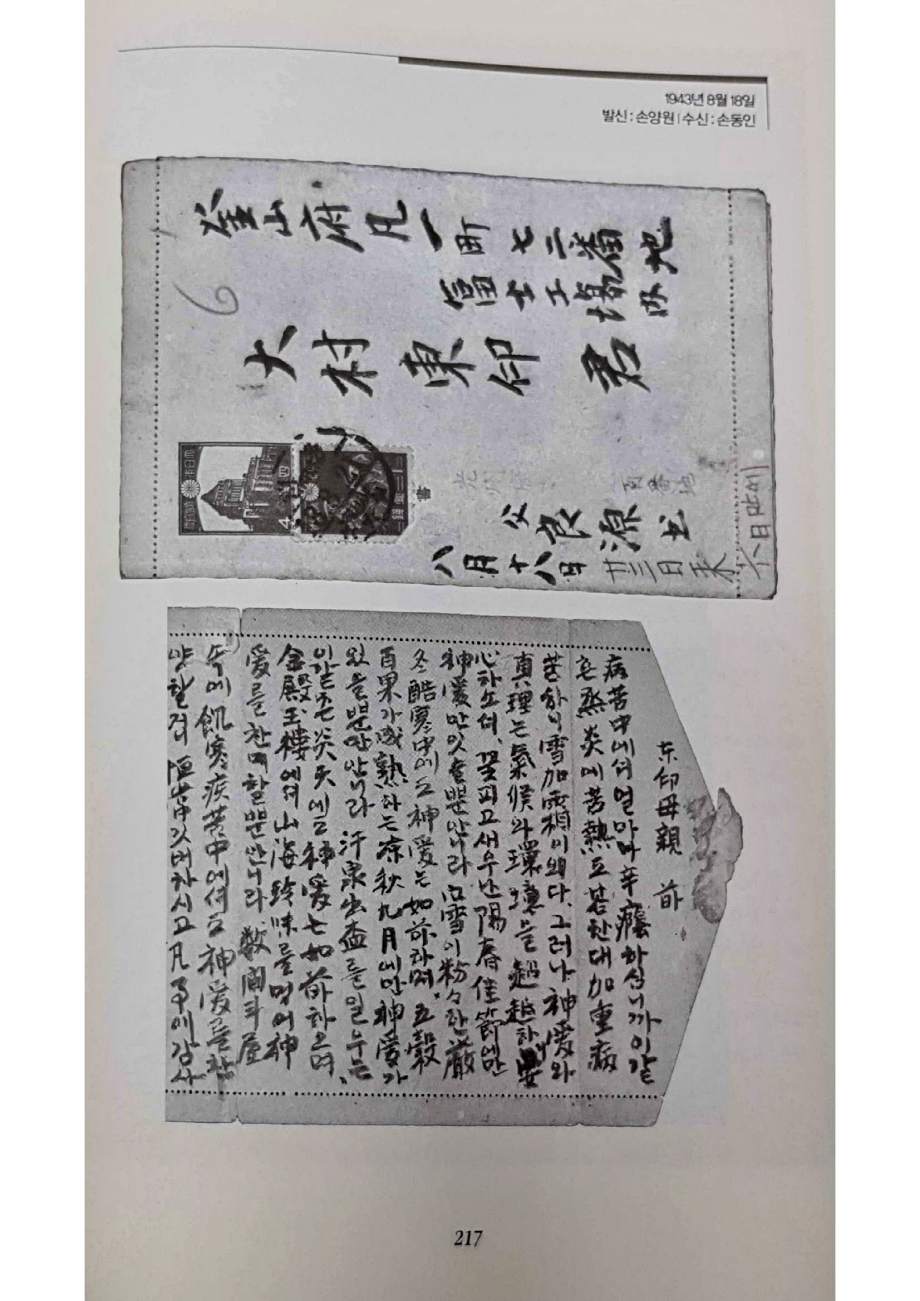 1943년 8월 18일
발신 : 손양원 | 수신 : 손동인
釜山府凡一町七二番地
富士工場内
大村東仁 君
6
父 良源 書
八月十八日
廿三日来
六日
百番地
东仁母親 前
病苦中에셔 얼마나 辛癢하심니까 이같
흔 熱炎에 苦熱도 苦한대 加重病
苦하니 雪加霜이외다. 그러나 神愛와
真理는 氣候와 環境을 超越하니 安
心하소셔. 꽃피고 새우난 陽春佳節에만
神愛만 잇을뿐 안니라 白雪이 粉々한 嚴
冬酷寒中에도 神愛는 如前하며, 五穀
百果가 成熟하는 凉秋九月에만 神愛가
있을뿐만 안니라 汗泉出盃를 일우는,
이같은 炎天에도 神愛는 如前하오며,
金殿玉樓에셔 山海珍味를 먹어 神
愛를 찬미할뿐 안니라, 數間斗屋
속에 飢寒疾苦中에셔도 神愛를 찬
양할것. 恒常 깃버하시고 凡事에 감사
217